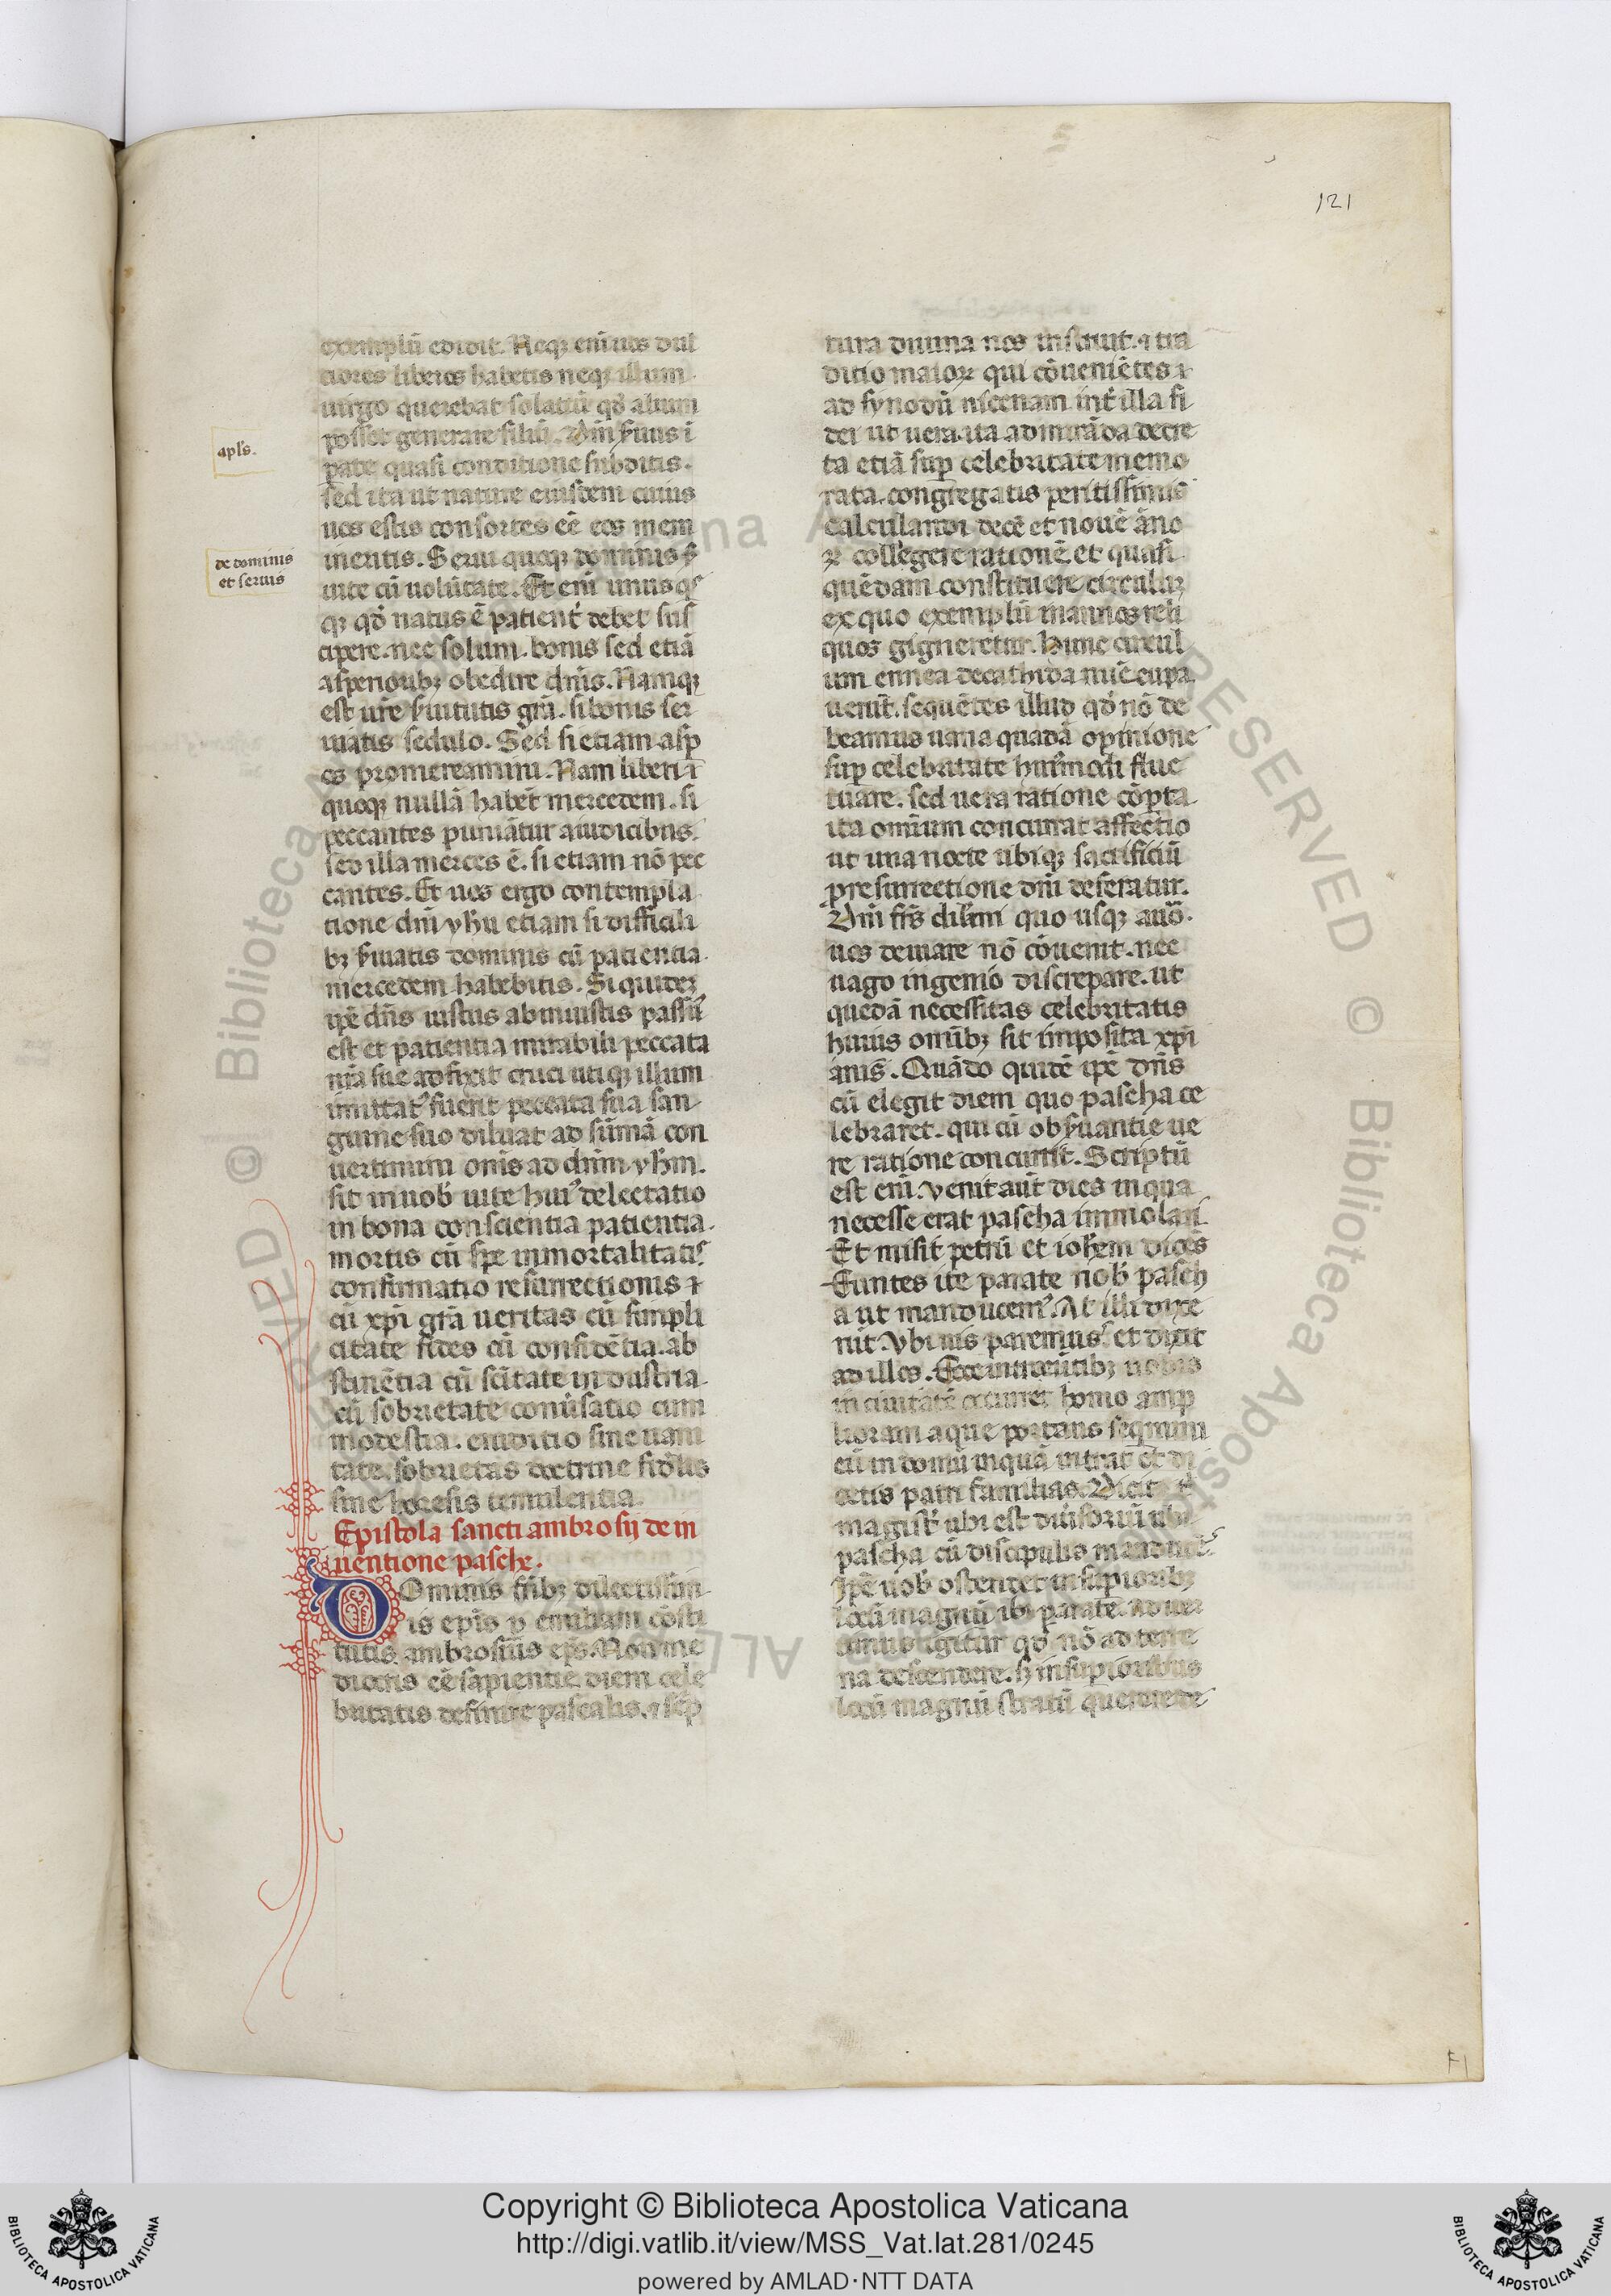 121
exemplũ edidit. Neqꝫ eni uos dul
tiores liberos habetis neqꝫ illum
uirgo querebat solatiũ qđ alium
posset generare filiũ. Dñi ẜuus ĩ
apls̄.
pate quasi conditione subditis.
sed ita ut nature eiusdem cuius
uos estis consortes eē eos mem
ineritis. Serui quoqꝫ dominis ẜ
de dominis
et seruis
uite cũ uolũtate. Et eni unusqͥs
qꝫ qđ natus ē patient̄ debet sus
cipere. nec solum. bonis sed etiã
asperioribꝫ obedire dnis. Namqꝫ
est ur̄e ẜuitutis grã. si bonis ser
uiatis sedulo. Sed si etiam asp
os promereamini. Nam liberi ĩ
quoqꝫ nullã habẽt mercedem. si
peccantes puniãtur a iudicibus.
sed illa merces ē. si etiam nõ pec
cantes. Et uos ergo contempla
tione dñi yhu etiam si difficili
bꝫ ẜuiatis dominis cũ patientia
mercedem habebitis. Siquideꝫ
ip̄e dñs iustus ab iniustis passũ
est et patientia mirabili peccata
nr̄a sue adfixit cruci uti qͥ illum
imitatꝰ fuerit peccata sua san
guine suo diluat ad sũmã con
uertimini onīs ad dnm yhm.
sit in uob̄ uite huiꝰ delectatio
in bona conscientia patientia
mortis cũ spe inmortalitatis
confirmatio resurrectionis ⁊
cũ xpi grã ueritas cũ simpli
citate fides cũ confidẽtia. ab
stinẽtia cũ scitate industria
cũ sobrietate conũsatio cum
modestia. eruditio sine uani
tate. sobrietas doctrine fidelis
sine heresis temulentia.
Epistola sancti ambrosij de in
uentione pasche.
Dominis frībꝫ dilectissim
is epis̄ p emiliam cõsti
tutis ambrosius ep̄s. Non me
diocris eē sapientie diem cele
britatis definire pascalis. ⁊ scp
tura diuina nos instruit. ⁊ tra
ditio maioꝝ qui cõueniẽtes ⁊
ad synodũ nicenam int̄ illa fi
dei ut uera. ita admirãda decre
ta etiã sup celebritate memo
rata. congregatis peritissimis
calculandi decē et nouē ãno
ꝝ collegere rationē et quasi
quẽdam constituere circuluꝫ
ex quo exemplũ in annos reli
quos gigneretur. hunc circul
um ennea decathida nũc eupa
uerūt. sequẽtes illud qđ nõ de
beamus uana quadã opinione
sup celebritate huiꝰmodi fluc
tuare. sed uera ratione cõpta
ita omium concurrat affectio
ut una nocte ubiqꝫ sacrificiũ
p resurrectione dñi deferatur.
Dñi frs̄ dilm̄i quo usqꝫ auõ.
uos deuiare nõ cõuenit. nec
uago ingenio discrepare. ut
quedã necessitas celebritatis
huius omibꝫ sit imposita xpi
anis. Quãdo quidē ip̄e dñs
cũ elegit diem quo pascha ce
lebraret. qui cũ obẜuantie ue
re ratione concurrit. Scriptũ
est eni. venit aũt dies in qua
necesse erat pascha immolari.
Et misit petrũ et iohem dices
Euntes ite parate nob̄ pasch
a ut manducemꝰ. At illi dixe
rūt. Vbi uis paremus. et dixit
ad illos. Ecce introeũtibꝫ uobis
in ciuitatē occurret homo amp
horam aque portans sequimini
eũ in domũ in quã intrat et di
cetis patri familias. Dicit t̄
magist̄ ubi est diuisoriũ ubi
pascha cũ discipulis manduce.
Ip̄e uob̄ ostendet in supioribꝫ
locũ magnũ ibi parate. aduer
timus igitur qđ nõ ad terre
na descendere. ẜ in supioribus
locũ magnũ stratũ querere de
Copyright © Biblioteca Apostolica Vaticana
http://digi.vatlib.it/view/MSS_Vat.lat.281/0245
powered by AMLAD·NTT DATA
BIBLIOTECA APOSTOLICA VATICANA
BIBLIOTECA APOSTOLICA VATICANA